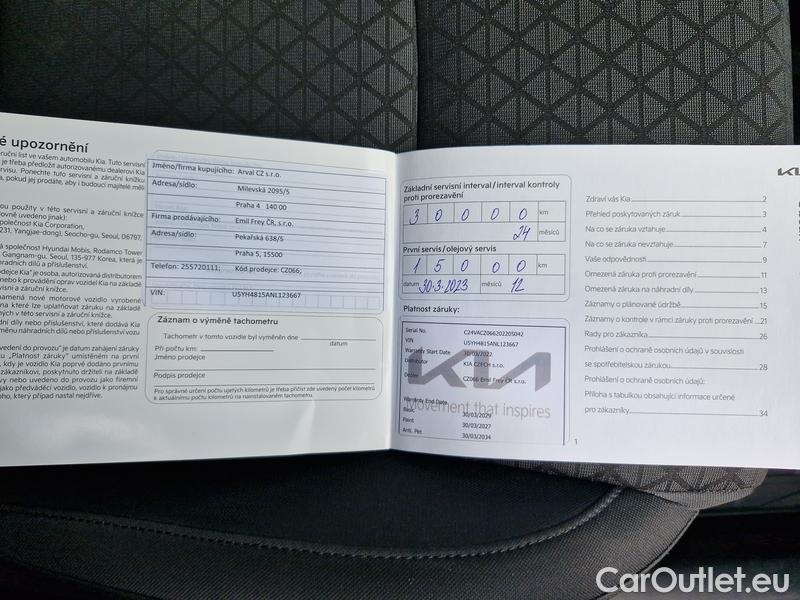 é upozornění
ruční list ve vašem automobilu Kia. Tuto servisní
je třeba předložit autorizovanému dealerovi Kia
rvisu. Ponechte tuto servisní a záruční knížku
, pokud jej prodáte, aby i budoucí majitelé měli
ou použity v této servisní a záruční knížce
společnost Kia Corporation,
231, Yangjae-dong), Seocho-gu, Seoul, 06797,
á společnost Hyundai Mobis, Rodamco Tower
Gangnam-gu, Seoul, 135-977 Korea, která je
hradních dílů a příslušenství.
dejce Kia“ je osoba, autorizovaná distributorem
nebo k provádění oprav vozidel Kia na základě
rvisní a záruční knížce.
namená nové motorové vozidlo vyrobené
na které lze uplatňovat záruku na základě
ných v této servisní a záruční knížce.
Jméno/firma kupujícího: Arval CZ s.r.o.
Adresa/sídlo: Milevská 2095/5
Praha 4 140 00
Firma prodávajícího: Emil Frey ČR, s.r.o.
Adresa/sídlo: Pekařská 638/5
Praha 5, 15500
Telefon: 255720111; Kód prodejce: CZ066;
VIN: U5YH4815ANL123667
Záznam o výměně tachometru
Tachometr v tomto vozidle byl vyměněn dne
datum
Při počtu km:
Jméno prodejce
Podpis prodejce
Pro správné určení počtu ujetých kilometrů je třeba přičíst zde uvedený počet kilometrů
k aktuálnímu počtu kilometrů na nainstalovaném tachometru.
Základní servisní interval/interval kontroly
proti prorezavění
3 0 0 0 0 km
24 měsíců
První servis/olejový servis
1 5 0 0 0 km
datum 30-3-2023 měsíců 12
Platnost záruky:
Serial No. C24VACZ066202205042
VIN U5YH4815ANL123667
Warranty Start Date 30/03/2022
Distributor KIA CZECH s.r.o.
Dealer CZ066 Emil Frey ČR s.r.o.
Warranty End Date
Basic 30/03/2029
Paint 30/03/2027
Anti. Per. 30/03/2034
KIA
Movement that inspires
1
KIA
Zdraví vás Kia 2
Přehled poskytovaných záruk 3
Na co se záruka vztahuje 4
Na co se záruka nevztahuje 7
Vaše odpovědnosti 9
Omezená záruka proti prorezavění 11
Omezená záruka na náhradní díly 13
Záznamy o plánované údržbě 15
Záznamy o kontrole v rámci záruky proti prorezavění 21
Rady pro zákazníka 26
Prohlášení o ochraně osobních údajů v souvislosti
se spotřebitelskou zárukou 28
Prohlášení o ochraně osobních údajů:
Příloha s tabulkou obsahující informace určené
pro zákazníky 34
CarOutlet.eu